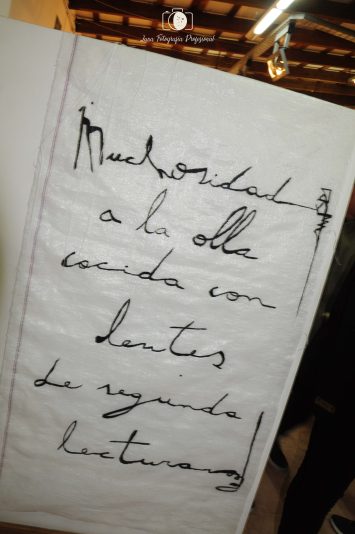 Luna Fotografía Profesional
Muchosidad
a la olla
cocida con
lentes
de segunda
lectura